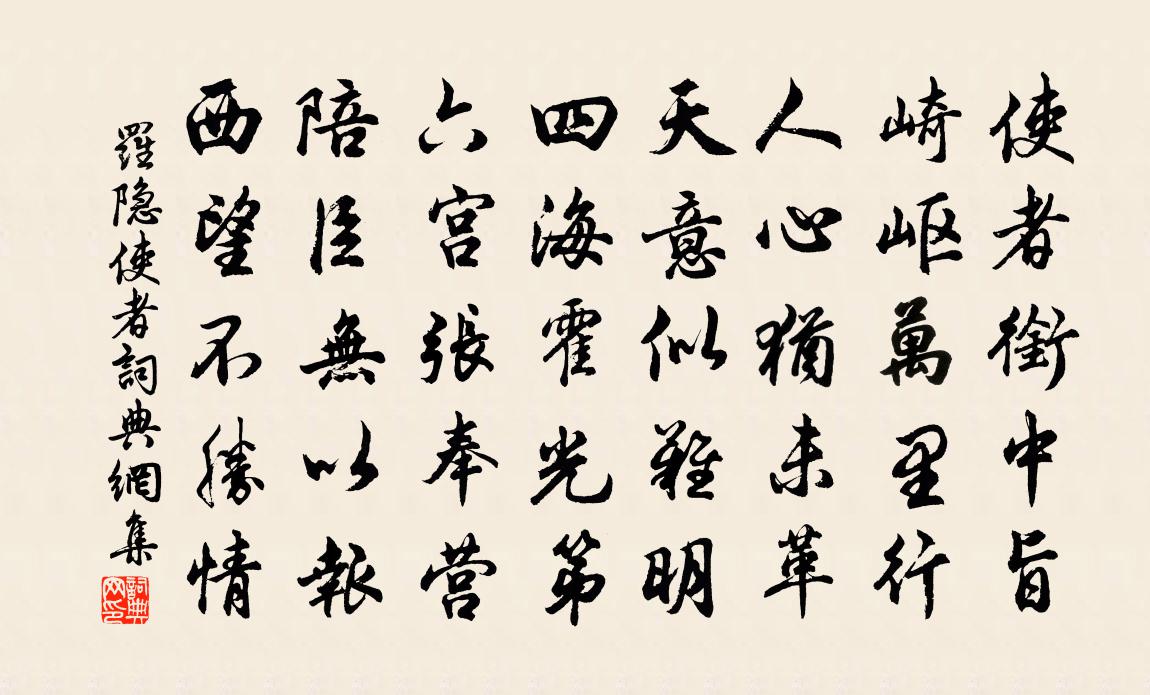 使者銜中旨
崎岖萬里行
人心猶未革
天意似難明
四海霍光第
六宫張奉营
陪臣無以報
西望不勝情
羅隐使者詞典網集
詞典网印